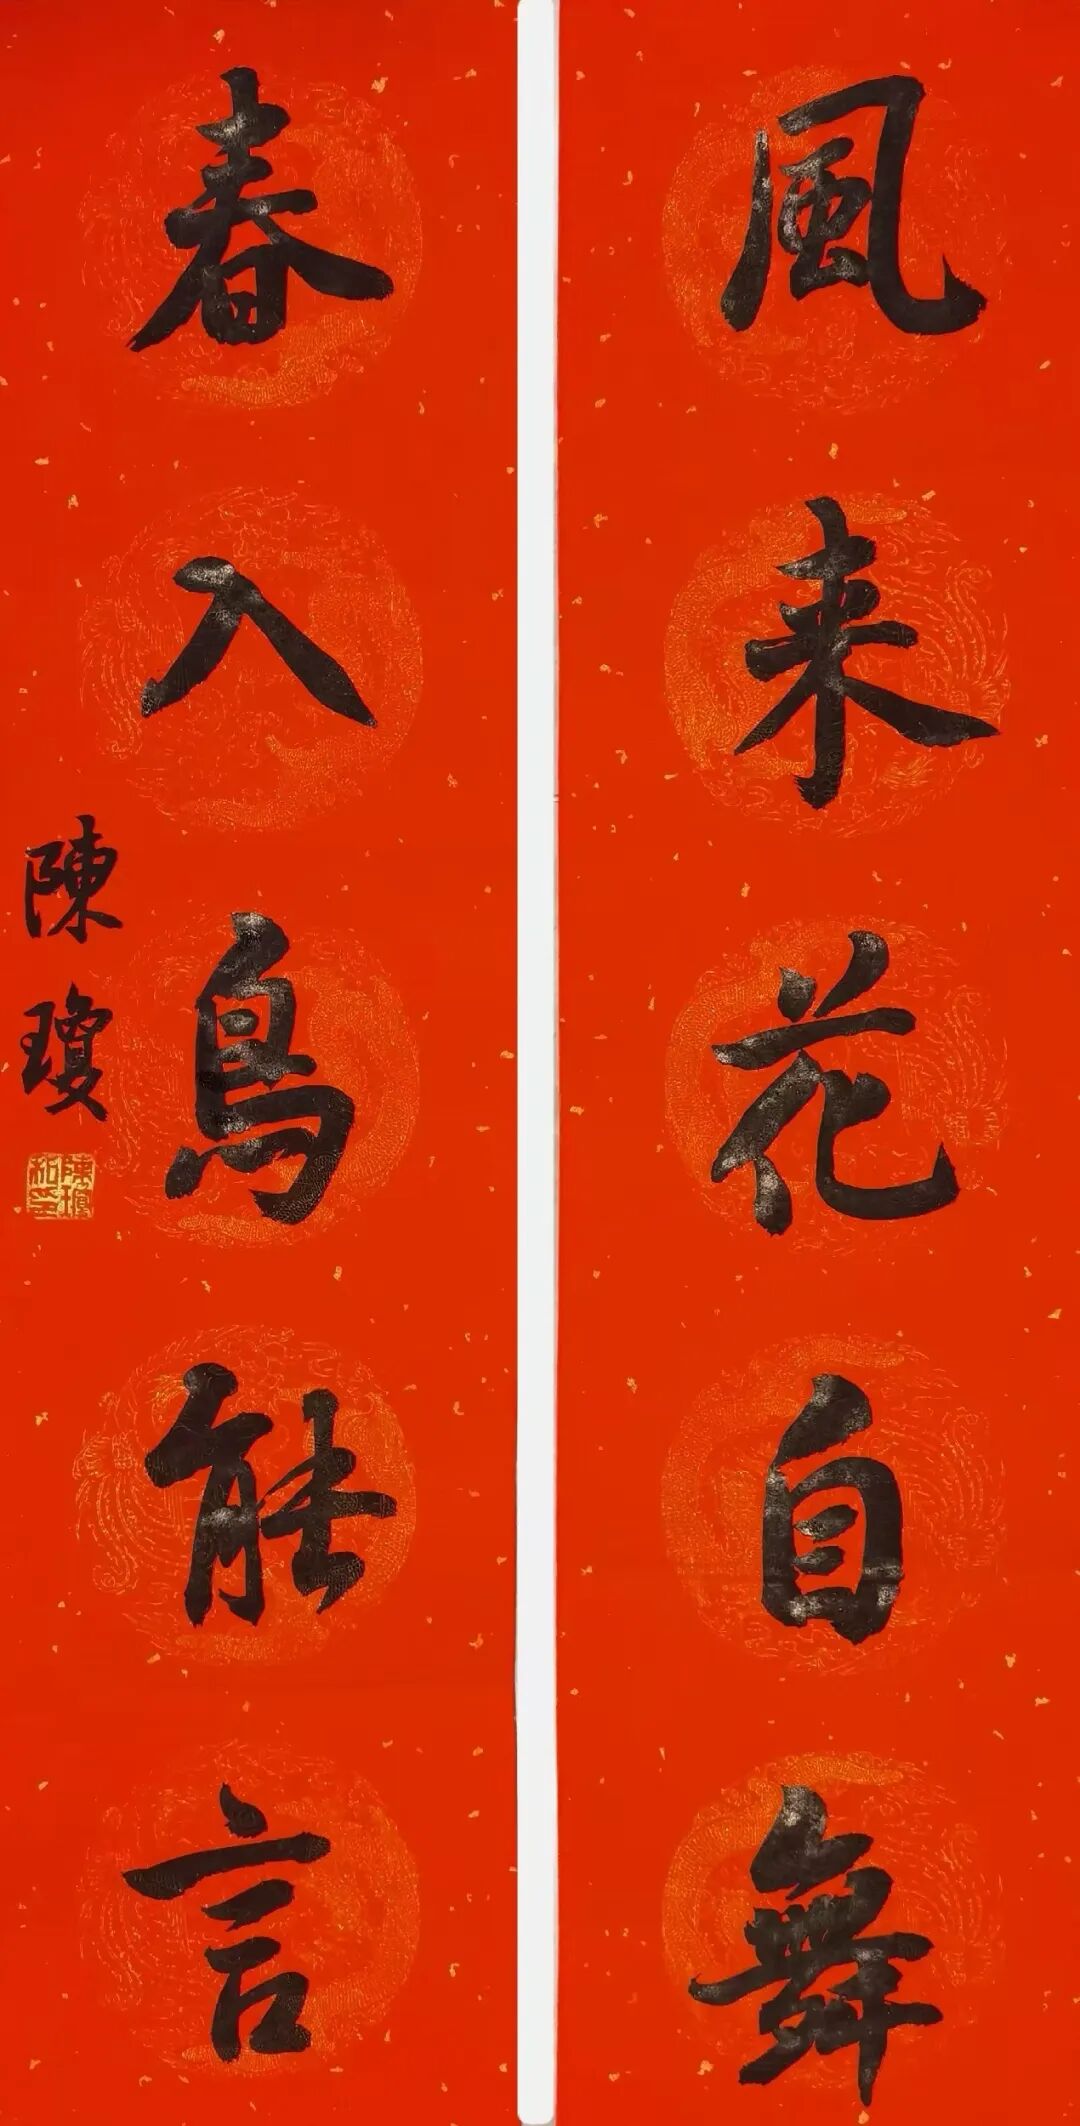 風来花自舞
春入鳥能言
陳瓊
陳瓊私印